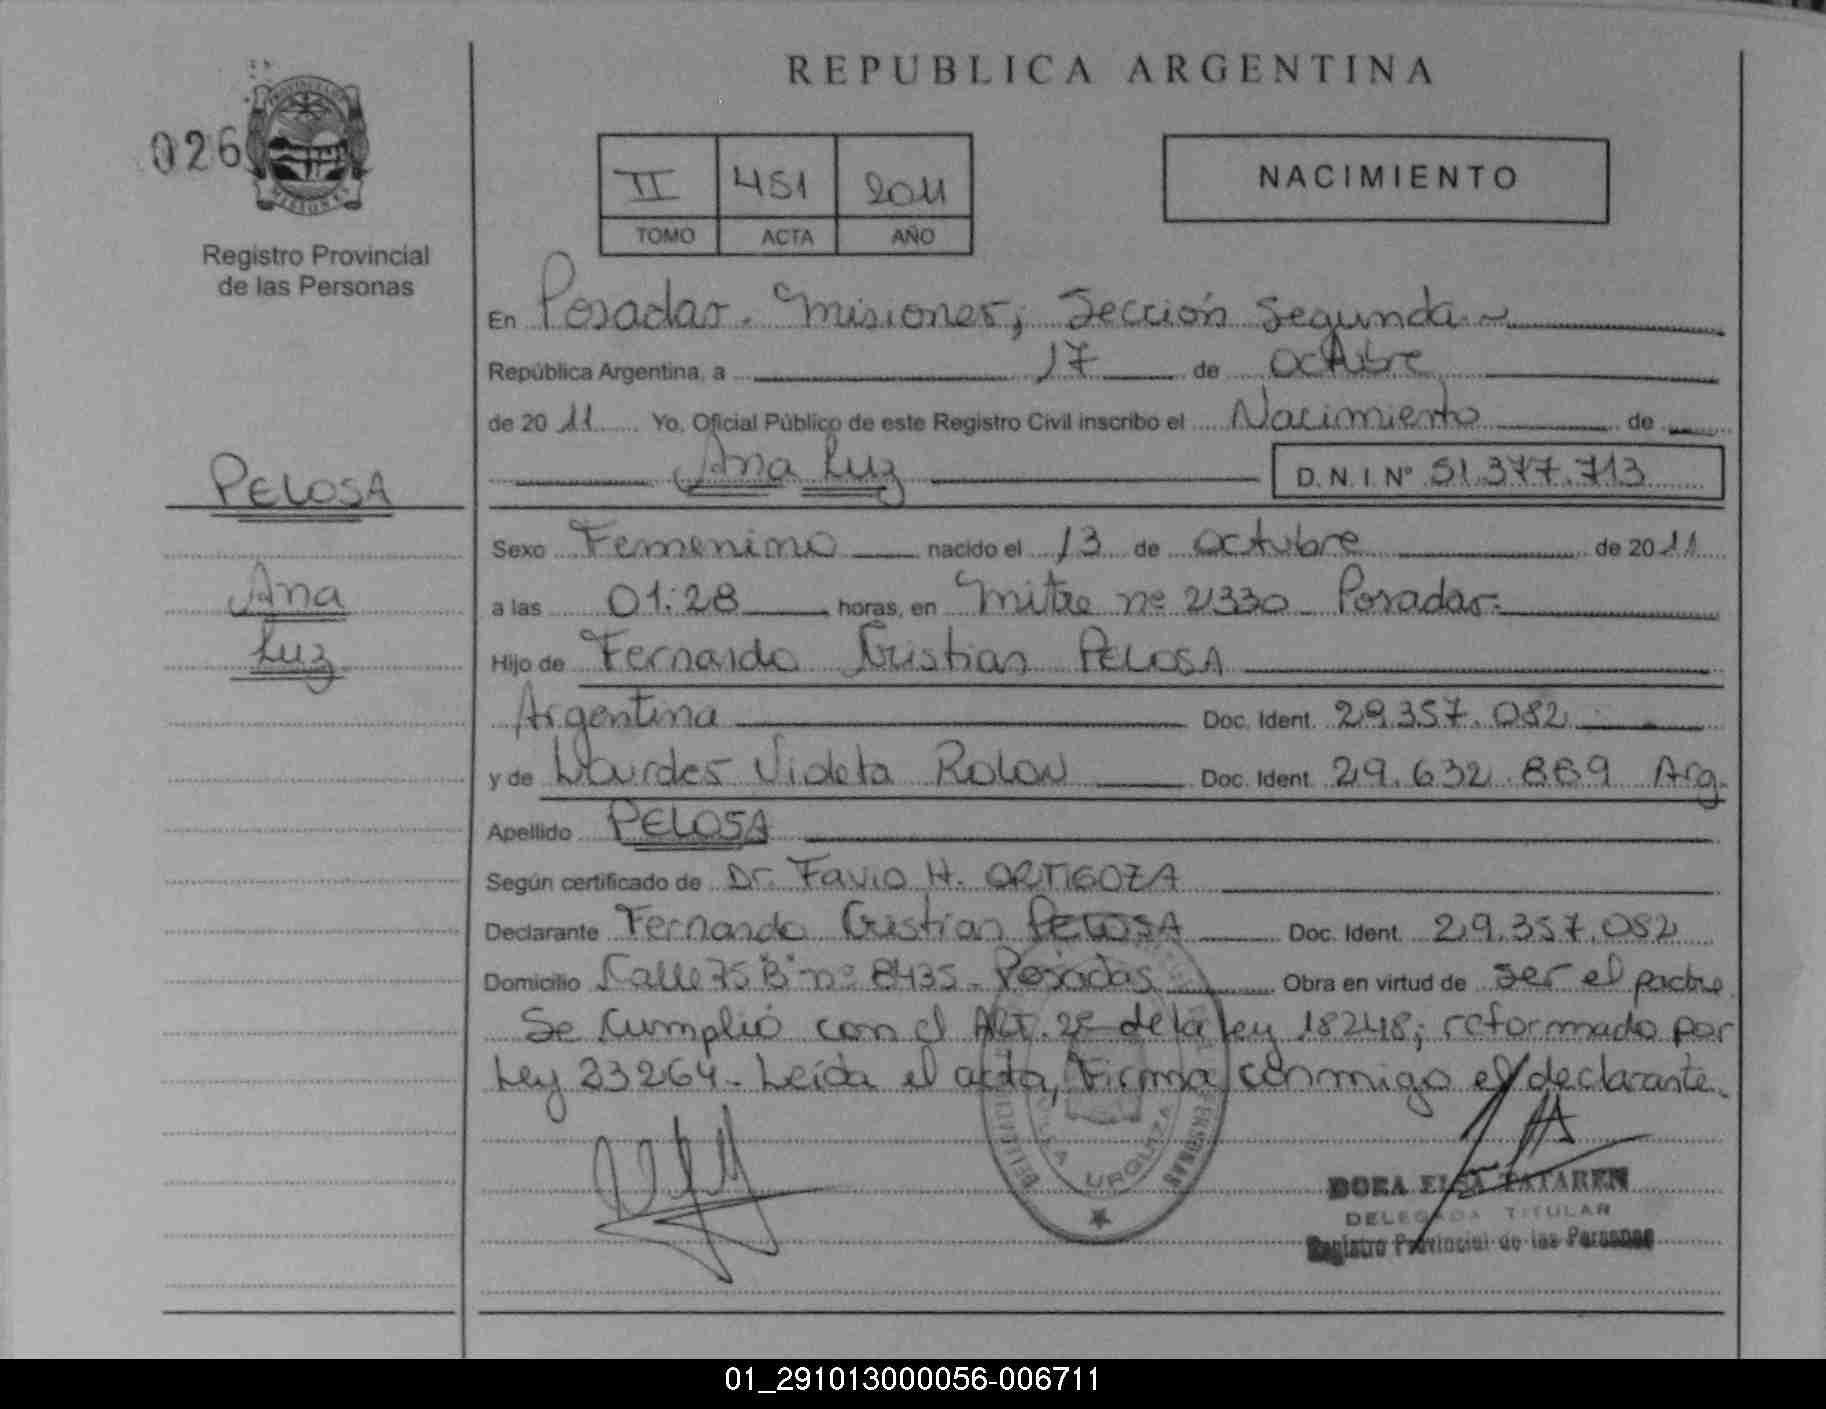 REPUBLICA ARGENTINA
026
Registro Provincial
de las Personas
II 451 2011
TOMO ACTA AÑO
NACIMIENTO
En Posadas. Misiones, Sección Segunda
República Argentina, a 17 de octubre
de 20 11 Yo, Oficial Público de este Registro Civil inscribo el Nacimiento de
Ana Luz D.N.I. Nº 51.377.713
PELOSA
Ana
Luz
Sexo Femenino nacido el 13 de octubre de 20 11
a las 01:28 horas, en Mitre nº 2330 Posadas.
Hijo de Fernando Cristian PELOSA
Argentina Doc. Ident. 29.357.082
y de Lourdes Violeta Rolon Doc. Ident. 29.632.889 Arg.
Apellido PELOSA
Según certificado de Dr. Favio H. ORTIGOZA
Declarante Fernando Cristian PELOSA Doc. Ident. 29.357.082
Domicilio Calle 75 "B" nº 8435 - Posadas Obra en virtud de ser el padre
Se cumplió con el Art. 2º de la Ley 18248; reformado por
Ley 23264. Leída el acta, Firma conmigo el declarante.
URQUIZA
DORA ELSA TATAREN
DELEGADA TITULAR
Registro Provincial de las Personas
01_291013000056-006711